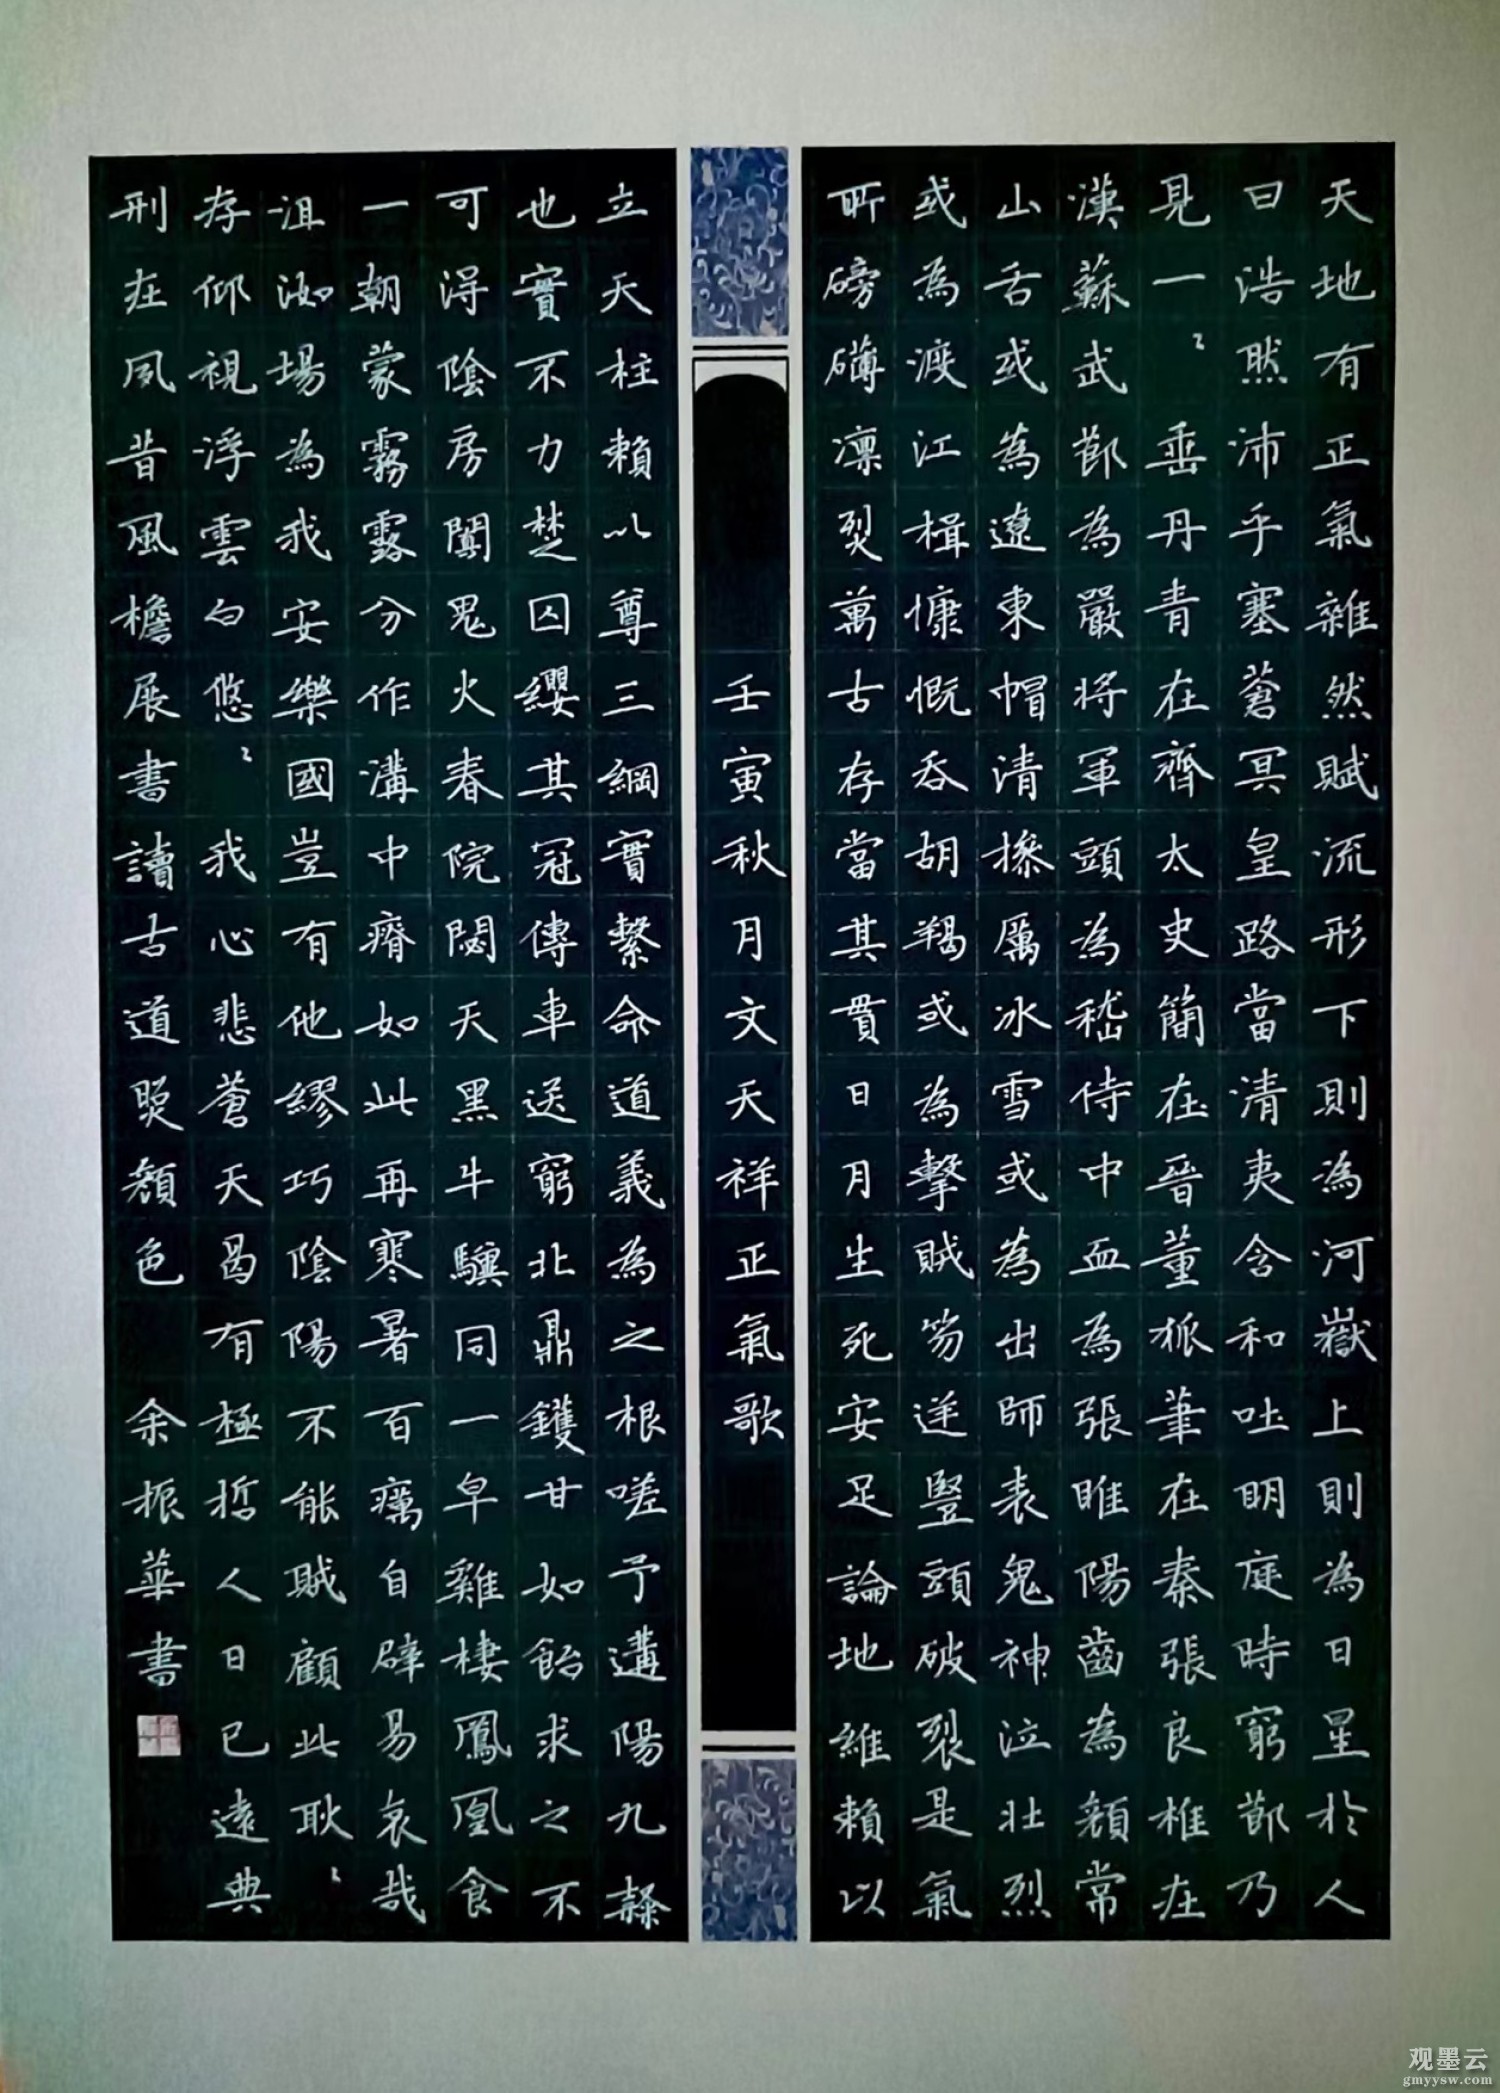 天地有正氣雜然賦流形下則為河嶽上則為日星於人
曰浩然沛乎塞蒼冥皇路當清夷含和吐明庭時窮節乃
見一〻垂丹青在齊太史簡在晉董狐筆在秦張良椎在
漢蘇武節為嚴將軍頭為嵇侍中血為張睢陽齒為顏常
山舌或為遼東帽清操厲冰雪或為出師表鬼神泣壯烈
或為渡江楫慷慨吞胡羯或為擊賊笏逆豎頭破裂是氣
所磅礴凜烈萬古存當其貫日月生死安足論地維賴以
壬寅秋月文天祥正氣歌
立天柱賴以尊三綱實繫命道義為之根嗟予遘陽九隸
也實不力楚囚纓其冠傳車送窮北鼎鑊甘如飴求之不
可得陰房闃鬼火春院閟天黑牛驥同一皁雞棲鳳凰食
一朝蒙霧露分作溝中瘠如此再寒暑百癘自辟易哀哉
沮洳場為我安樂國豈有他繆巧陰陽不能賊顧此耿〻
存仰視浮雲白悠〻我心悲蒼天曷有極哲人日已遠典
刑在夙昔風檐展書讀古道照顏色 余振華書
观墨云
gmyysw.com